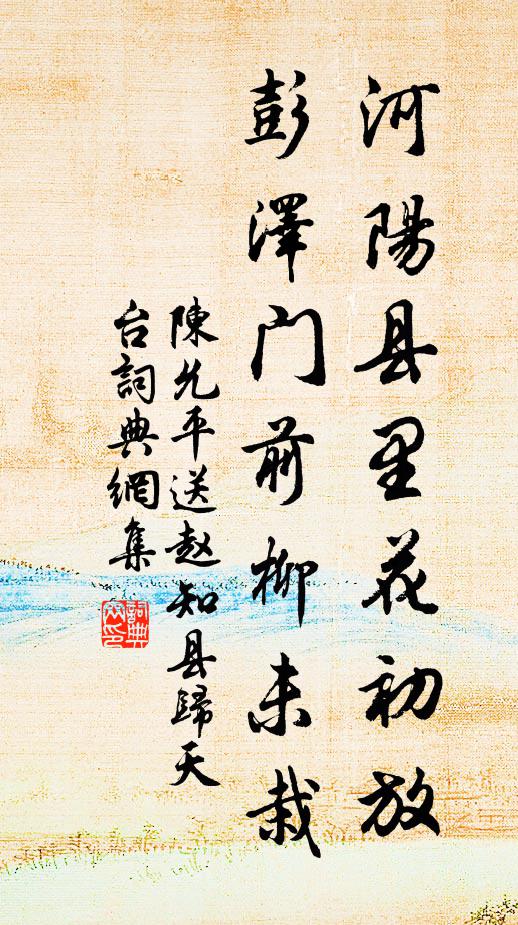 河陽县里花初放
彭澤门前柳未栽
陳允平送赵知县歸天
台詞典網集
詞典网印